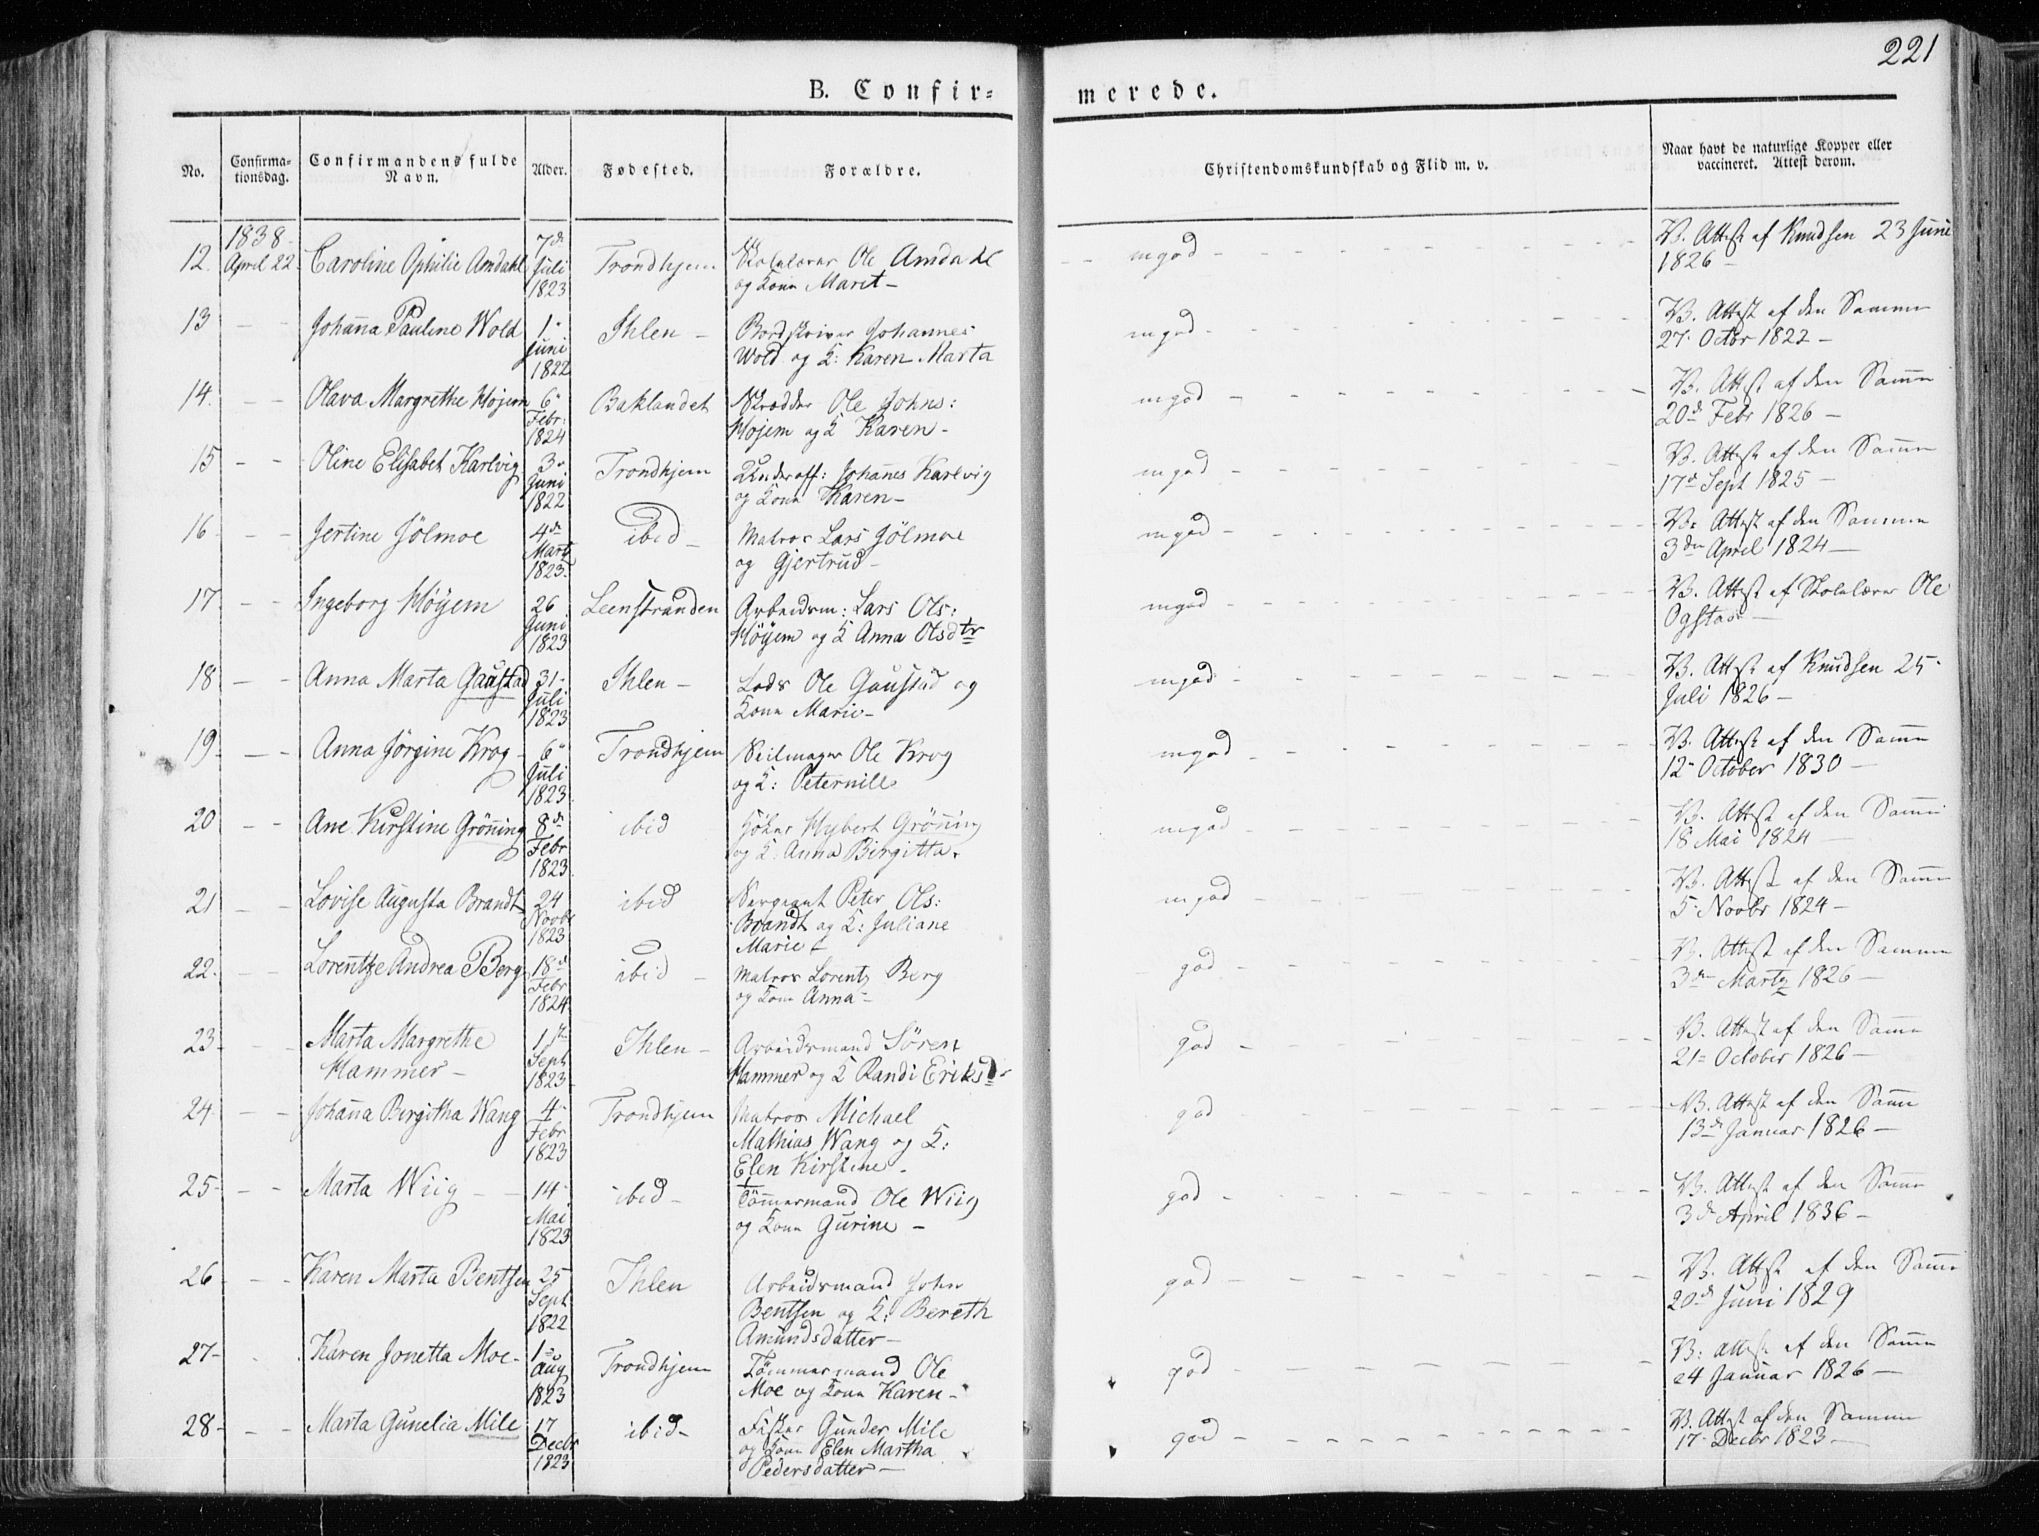 221
B. Confir-
merede.
No.
Confirma-
tionsdag.
Confirmandens fulde
Navn.
Alder.
Fødested.
Forældre.
Christendomskundskab og Flid m. v.
Naar havt de naturlige Kopper eller
vaccineret. Attest derom.
1838
12. April 22. Caroline Ophilie Amdahl 7de Juli 1823 Trondhjem Skolelærer Ole Amdahl mgod V. Attest af Knudsen 23 Juni
og Kone Marit 1826
13 Johanna Pauline Wold 1 Juni 1822 Ihlen Bordskriver Johannes mgod V. Attest af den Samme
Wold og K: Karen Marta 27 Octbr 1822
14. Olava Margrethe Højem 6 Febr: 1824 Baklandet Skrædder Ole Johns: mgod V. Attest af den Samme
Højem og K Karen 20d Febr 1826
15 Oline Elisabet Karlvig 3 Juni 1822 Trondhjem Underoff: Johanes Karlvig mgod V. Attest af den Samme
og Kone Karen 17d Sept 1825
16 Jertine Jölmoe 4de Marts 1823 ibid Matros Lars Jölmoe mgod V. Attest af den Samme
og Gjertrud 3die April 1824
17 Ingeborg Höyem 26 Juni 1823 Leenstranden Arbeidsm: Lars Ols: mgod V. Attest af Skolelærer Ole
Höyem og K Anna Olsdtr Ogstad
18 Anna Marta Gaustad 31 Juli 1823 Ihlen Lods Ole Gaustad og mgod V. Attest af Knudsen 25
Kone Marie Juli 1826
19 Anna Jörgine Krog 6 Juli 1823 Trondhjem Seilmager Ole Krog mgod V. Attest af den Samme
og K: Peternille 12 October 1830
20 Ane Kirstine Gröning 8de Febr 1823 ibid Höker Hybert Gröning mgod V. Attest af den Samme
og K: Anna Birgitta. 18 Mai 1824
21 Lovise Augusta Brandt 24 Novbr 1823 ibid Sergeant Peter Ols: mgod V. Attest af den Samme
Brandt og K: Juliane 5 Novbr 1824
Marie
22. Lorentze Andrea Berg 18d Febr 1824 ibid Matros Lorentz Berg god V. Attest af den Samme
og Kone Anna 3die Martz 1826
23 Marta Margrethe 1ste Sept 1823 Ihlen Arbeidsmand Sören god V. Attest af den Samme
Hammer Hammer og K Randi Eriksd 21 October 1826
24 Johana Birgitha Wang 4 Febr 1823 Trondhjem Matros Michael god V. Attest af den Samme
Mathias Wang og K: 13d Januar 1826
Elen Kirstine
25 Marta Wiig 14 Mai 1823 ibid Tömmermand Ole Wiig god V. Attest af den Samme
og Kone Gurine 3d April 1836
26 Karen Marta Bentsen 25 Sept 1822 Ihlen Arbeidsmand John god V. Attest af den Samme
Bentsen og K: Bereth 20d Juni 1829
Amundsdatter
27 Karen Jonetta Moe 1 Aug 1823 Trondhjem Tömmermand Ole god V: Attest af den Samme
Moe og Kone Karen 24 Januar 1826
28 Marta Gunelia Mile 17 Decbr 1823 ibid Fisker Gunder Mile god V. Attest af den Samme
og Kone Elen Martha 17 Decbr 1823
Pedersdatter